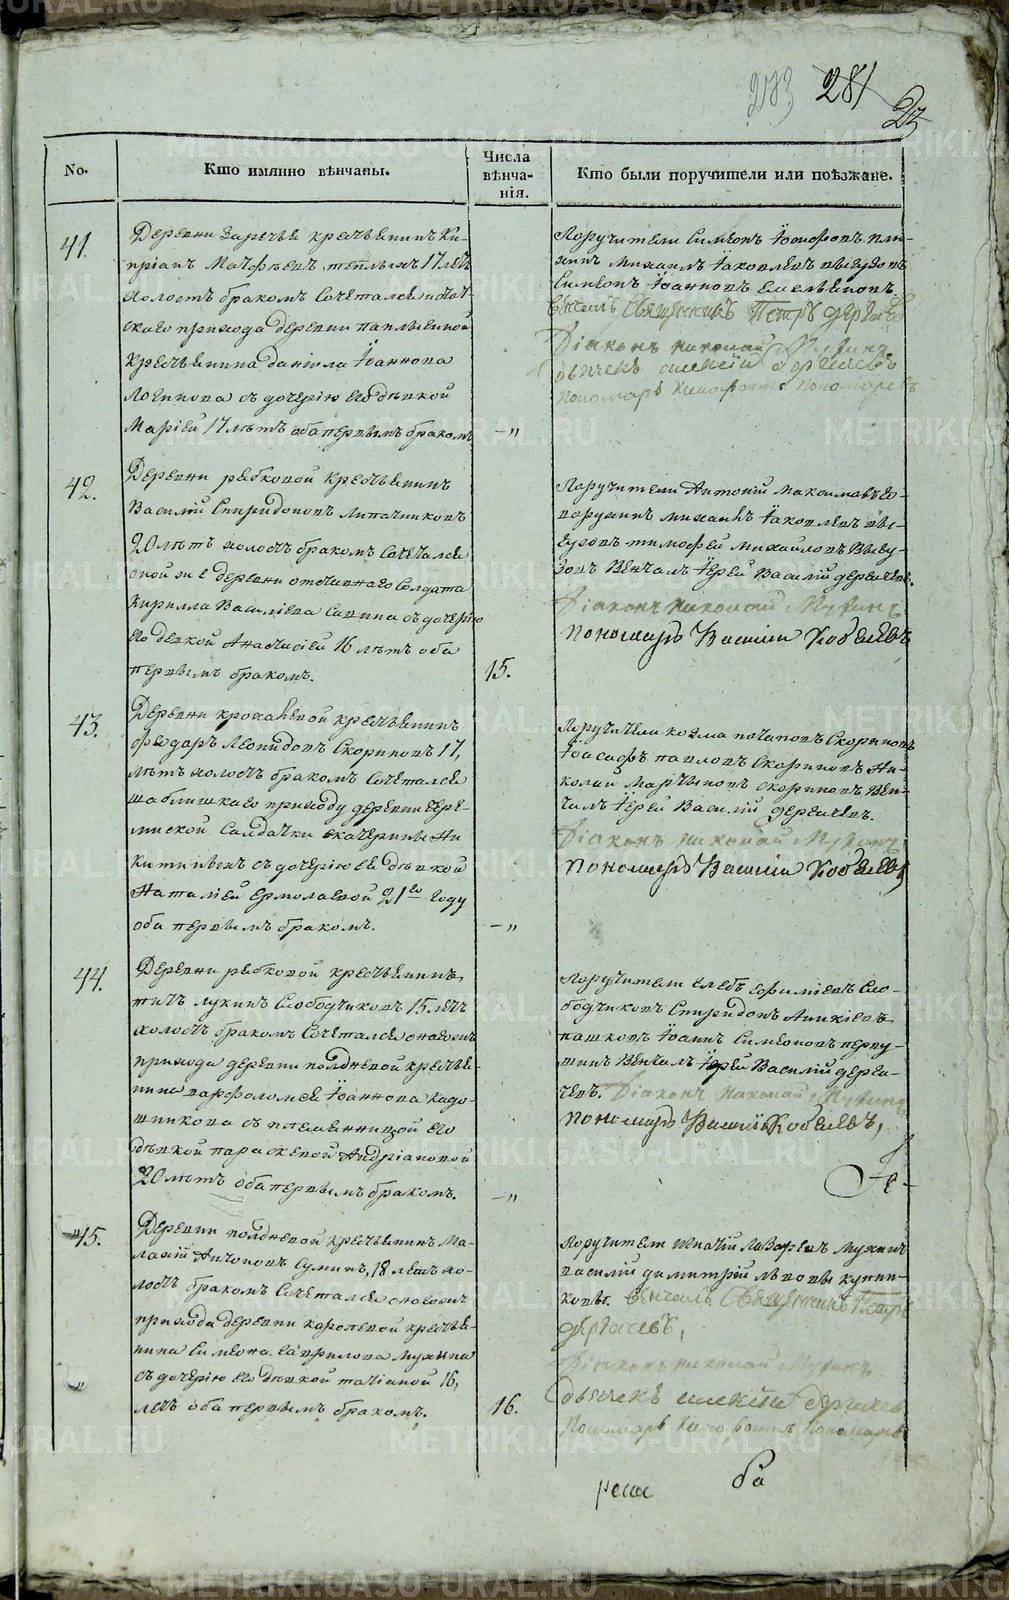 283 281
No.
Кто имянно вѣнчаны.
Числа
вѣнча-
нія.
Кто были поручители или поѣзжане.
41.
Деревни Заречья крестьянинъ Ки-
пріанъ Матѳѣевъ Теплыхъ 17 летъ
холостъ бракомъ сочетался
скаго прихода деревни
крестьянина Даніила Іоаннова
Логинова съ дочерію его дѣвкой
Маріей 17 лѣтъ оба первымъ бракомъ
-"
Поручители Симеонъ Іосифовъ
Михаилъ Іаковлевъ
Симеонъ Іоанновъ Емельяновъ
Вѣнчалъ Священникъ Петръ
Діаконъ Николай Мухинъ
дьячекъ Алексій Дергачевъ
Пономарь Пономаревъ
42.
Деревни рыбковой крестьянинъ
Василій Спиридоновъ Липатниковъ
20 лѣтъ холостъ бракомъ сочетался
оной же деревни отставнаго Солдата
Кирилла Василіева Савина съ дочерію
его девкой Анастасіей 16 лѣтъ оба
первымъ бракомъ.
15.
Поручители Антоній Максимовъ Го-
ворухинъ Михаилъ Іаковлевъ Вы-
гузовъ Тимофей Михайловъ Выгу-
зовъ Венчалъ Іерей Василій дергачевъ.
Діаконъ Николай Мухинъ
Пономарь Василій Кобелевъ
43.
Деревни крохалевой крестьянинъ
Феодоръ Леонидовъ Скорыновъ 17,
лѣтъ холостъ бракомъ сочетался
шаблишскаго приходу деревни чере-
миской Салдатки Екатерины Ни-
китиныхъ съ дочерію ея дѣвкой
Наталіей Ермолаевой 21го году
оба первымъ бракомъ.
-"
Поручители козма Потаповъ Скорыновъ
Іоасафъ Павловъ Скорыновъ Ни-
колай Мартыновъ скорыновъ Вен-
чалъ Іерей Василій дергачевъ.
Діаконъ Николай Мухинъ
Пономарь Василій Кобелевъ
44.
Деревни рыбковой крестьянинъ
Титъ Лукинъ Слободчиковъ 15 летъ
холостъ бракомъ сочетался
прихода деревни полдневой крестья-
нина варфоломея Іоаннова Кадо-
шникова съ племянницой его
дѣвкой параскевой Андріановой
20 лѣтъ оба первымъ бракомъ.
-"
Поручители Глебъ Ефиміевъ Сло-
бодчиковъ Спиридонъ Аникіевъ
пашковъ Іоаннъ Симеоновъ перву-
шинъ Венчалъ Іерей Василій Дерга-
чевъ. Діаконъ Николай Мухинъ
Пономарь Василій Кобелевъ,
45.
Деревни полдневой крестьянинъ Ма-
лафій Антоновъ Суминъ, 18 летъ хо-
лостъ бракомъ сочетался
прихода деревни каролевой крестья-
нина Симеона Гаврилова Мухина
съ дочерію его дѣвкой татіаной 16,
летъ оба первымъ бракомъ.
16.
Поручители Игнатій Лазаревъ Мухинъ
василій димитрій Львовы купин-
ковы. Вѣнчалъ Священникъ Петръ
дергачевъ,
Діаконъ Николай Мухинъ
дьячекъ Алексій Дергачев
Пономарь Пономаревъ